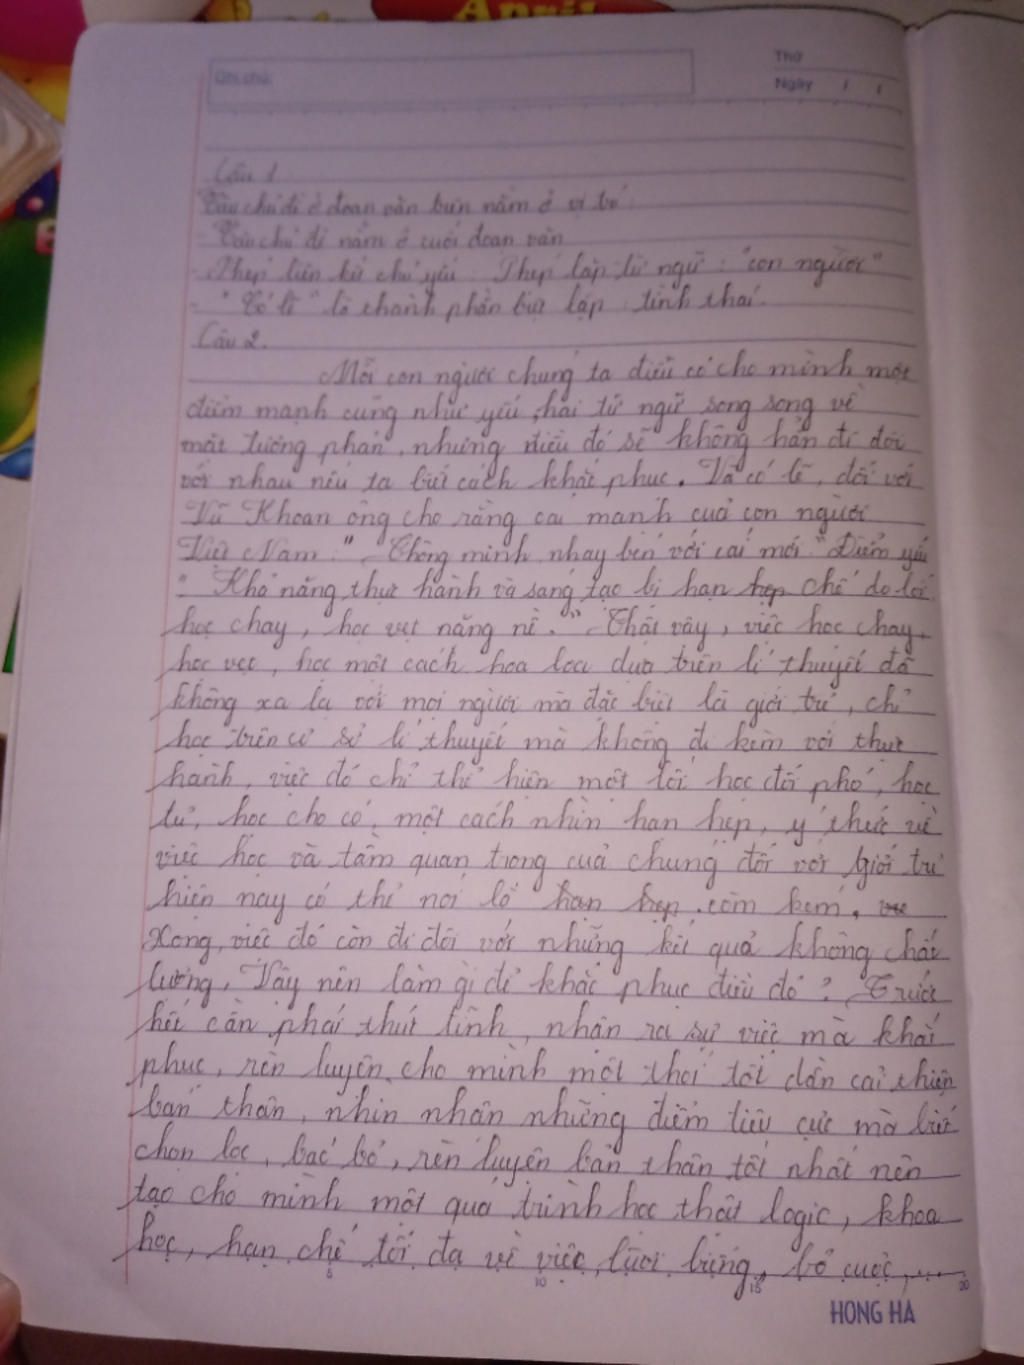 April
Ghi chú:
Thứ
Ngày / /
Câu 1
Câu chủ đề ở đoạn văn trên nằm ở vị trí:
- Câu chủ đề nằm ở cuối đoạn văn
- Phép liên kết chủ yếu: Phép lặp từ ngữ: "con người"
- "Có lẽ" là thành phần biệt lập: tình thái.
Câu 2.
Mỗi con người chúng ta điều có cho mình một
điểm mạnh cũng như yếu, hai từ ngữ song song về
mặt tương phản, nhưng điều đó sẽ không hẳn đi đôi
với nhau nếu ta biết cách khắc phục. Và có lẽ, đối với
Vũ Khoan ông cho rằng cái mạnh của con người
Việt Nam: "Thông minh nhạy bén với cái mới" Điểm yếu
: "Khả năng thực hành và sáng tạo bị hạn hẹp chế do lối
học chay, học vẹt nặng nề." Thật vậy, việc học chay,
học vẹt, học một cách hoa loa dựa trên lí thuyết đã
không xa lạ với mọi người mà đặc biệt là giới trẻ, chỉ
học trên cơ sở lí thuyết mà không đi kèm với thực
hành, việc đó chỉ thể hiện một lối học đối phó, học
tủ, học cho có, một cách nhìn hạn hẹp, ý thức về
việc học và tầm quan trọng của chúng đối với giới trẻ
hiện nay có thể nói là hạn hẹp, còm kém.
Xong, việc đó còn đi đôi với những kết quả không chất
lượng. Vậy nên làm gì để khắc phục điều đó? Trước
hết cần phải thứt tỉnh, nhận ra sự việc mà khắc
phục, rèn luyện cho mình một thói tốt dần cải thiện
bản thân, nhìn nhận những điểm tiêu cực mà biết
chọn lọc, bác bỏ, rèn luyện bản thân tốt nhất nên
tạo cho mình một quá trình học thật logic, khoa
học, hạn chế tối đa về việc lười biếng, bỏ cuộc,...
5 10 15 20
HONG HA